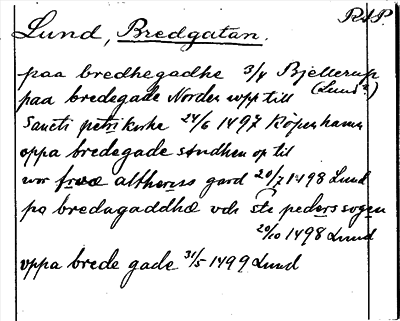 R&P.
Lund, Bredgatan.
paa bredhegadhe 3/4 Bjellerup
(Lund?)
paa bredegade Norden wpp till
Sancti petri kirke 24/6 1497 Köpenhamn
oppa bredegade sundhen op til
wor frwæ altheress gard 20/7 1498 Lund
po bredagaddhæ vdi ste peders sogen
20/10 1498 Lund
vppa brede gade 31/5 1499 Lund